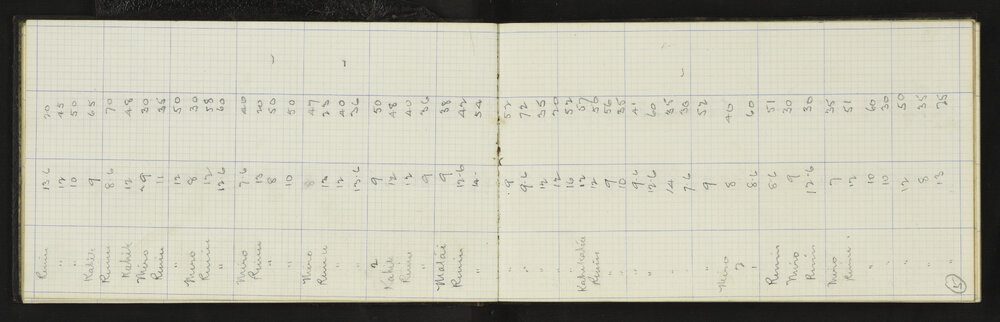 Rimu 13.6 20
" 12 45
" 10 50
9 65
Rimu 8.6 70
Kahik 12 48
Miro 9 30
Rimu 11 35
" 12 50
Miro 8 30
Rimu 12 58
" 12.6 60
Miro 7.6 40
Rimu 13 20
" 8 50
" 10 50
Miro 8 47
Rimu 12 23
" 12 40
" 12.6 36
9 50
Kahik 12 48
Rimu 12 40
" 9 36
Matai 9 38
Rimu 12.6 42
" 14 54
" 9 52
" 9.6 72
" 12 35
" 12 20
" 16 52
Kahikatea 12 57
Rimu 12 50
" 9 56
" 10 35
" 9.6 41
" 12.6 60
" 14 35
" 7.6 30
" 9 52
Miro 8 40
" 8.6 60
Rimu 8.6 51
Miro 9 30
Rimu 12.6 30
Miro 7 35
Rimu 12 51
" 10 60
" 10 30
" 12 50
" 8 35
" 13 25
5